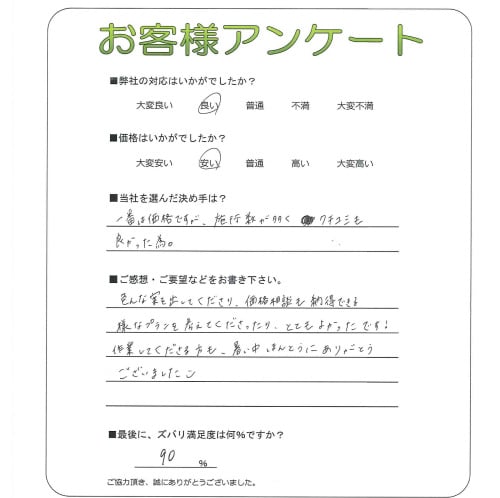 お客様アンケート
■弊社の対応はいかがでしたか？
大変良い 良い 普通 不満 大変不満
■価格はいかがでしたか？
大変安い 安い 普通 高い 大変高い
■当社を選んだ決め手は？
一番は価格ですが、施行数が多く クチコミも
良かった為。
■ご感想・ご要望などをお書き下さい。
色んな案を出してくださり、価格相談も納得できる
様なプランを考えてくださったり、とてもよかったです！
作業してくださる方も、暑い中ほんとうにありがとう
ございました
■最後に、ズバリ満足度は何%ですか？
90 %
ご協力頂き、誠にありがとうございました。